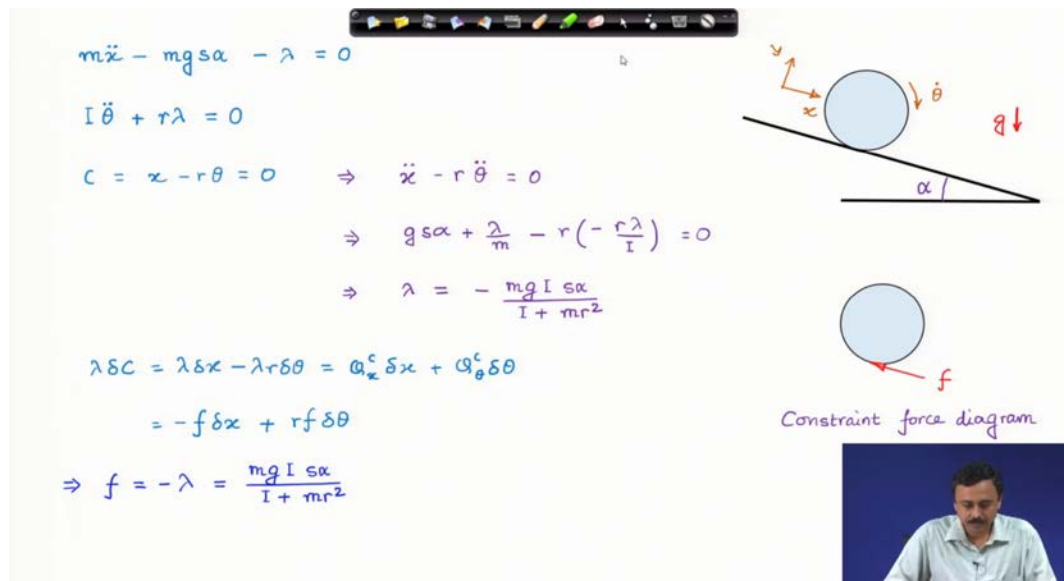 mẍ − mg sα − λ = 0
I θ̈ + rλ = 0
C = x − rθ = 0 ⇒ ẍ − r θ̈ = 0
⇒ g sα + λ/m − r(− rλ/I) = 0
⇒ λ = − mg I sα / I + mr²
λ δC = λ δx − λ r δθ = Q_x^c δx + Q_θ^c δθ
= −f δx + r f δθ
⇒ f = −λ = mg I sα / I + mr²
y
x
θ̇
g
α
f
Constraint force diagram